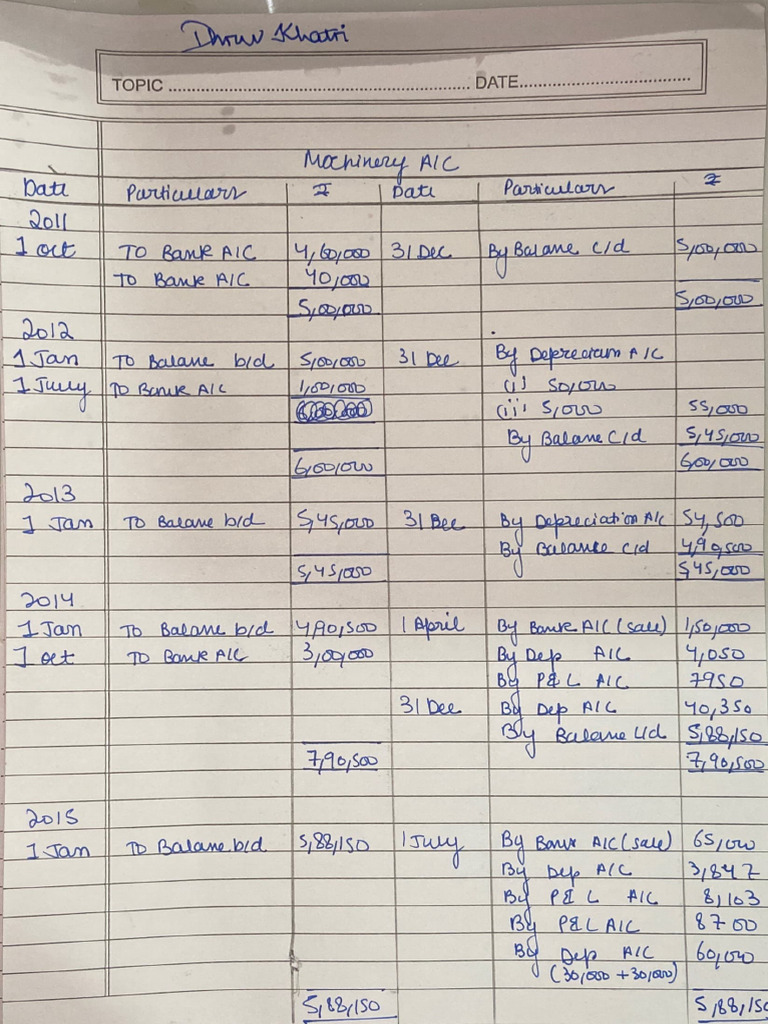 Dhruv Khatri
TOPIC ............................................................ DATE....................................
Machinery A/C
Date Particulars ₹ Date Particulars ₹
2011
1 Oct To Bank A/C 4,60,000 31 Dec By Balane C/d 5,00,000
To Bank A/C 40,000
5,00,000 5,00,000
2012
1 Jan To Balane b/d 5,00,000 31 Dec By Depreciation A/C
1 July To Bank A/C 1,00,000 (i) 50,000
(ii) 5,000 55,000
By Balane C/d 5,45,000
6,00,000 6,00,000
2013
1 Jan To Balane b/d 5,45,000 31 Dec By Depreciation A/c 54,500
By Balance C/d 4,90,500
5,45,000 5,45,000
2014
1 Jan To Balane b/d 4,90,500 1 April By Bank A/C (sale) 1,50,000
1 Oct To Bank A/C 3,00,000 By Dep A/C 4,050
By P&L A/C 7950
31 Dec By Dep A/C 40,350
By Balane C/d 5,88,150
7,90,500 7,90,500
2015
1 Jan To Balane b/d 5,88,150 1 July By Bank A/C (sale) 65,000
By Dep A/C 3,847
By P&L A/C 8,103
By P&L A/C 8700
By Dep A/C 60,000
(30,000 + 30,000)
5,88,150 5,88,150